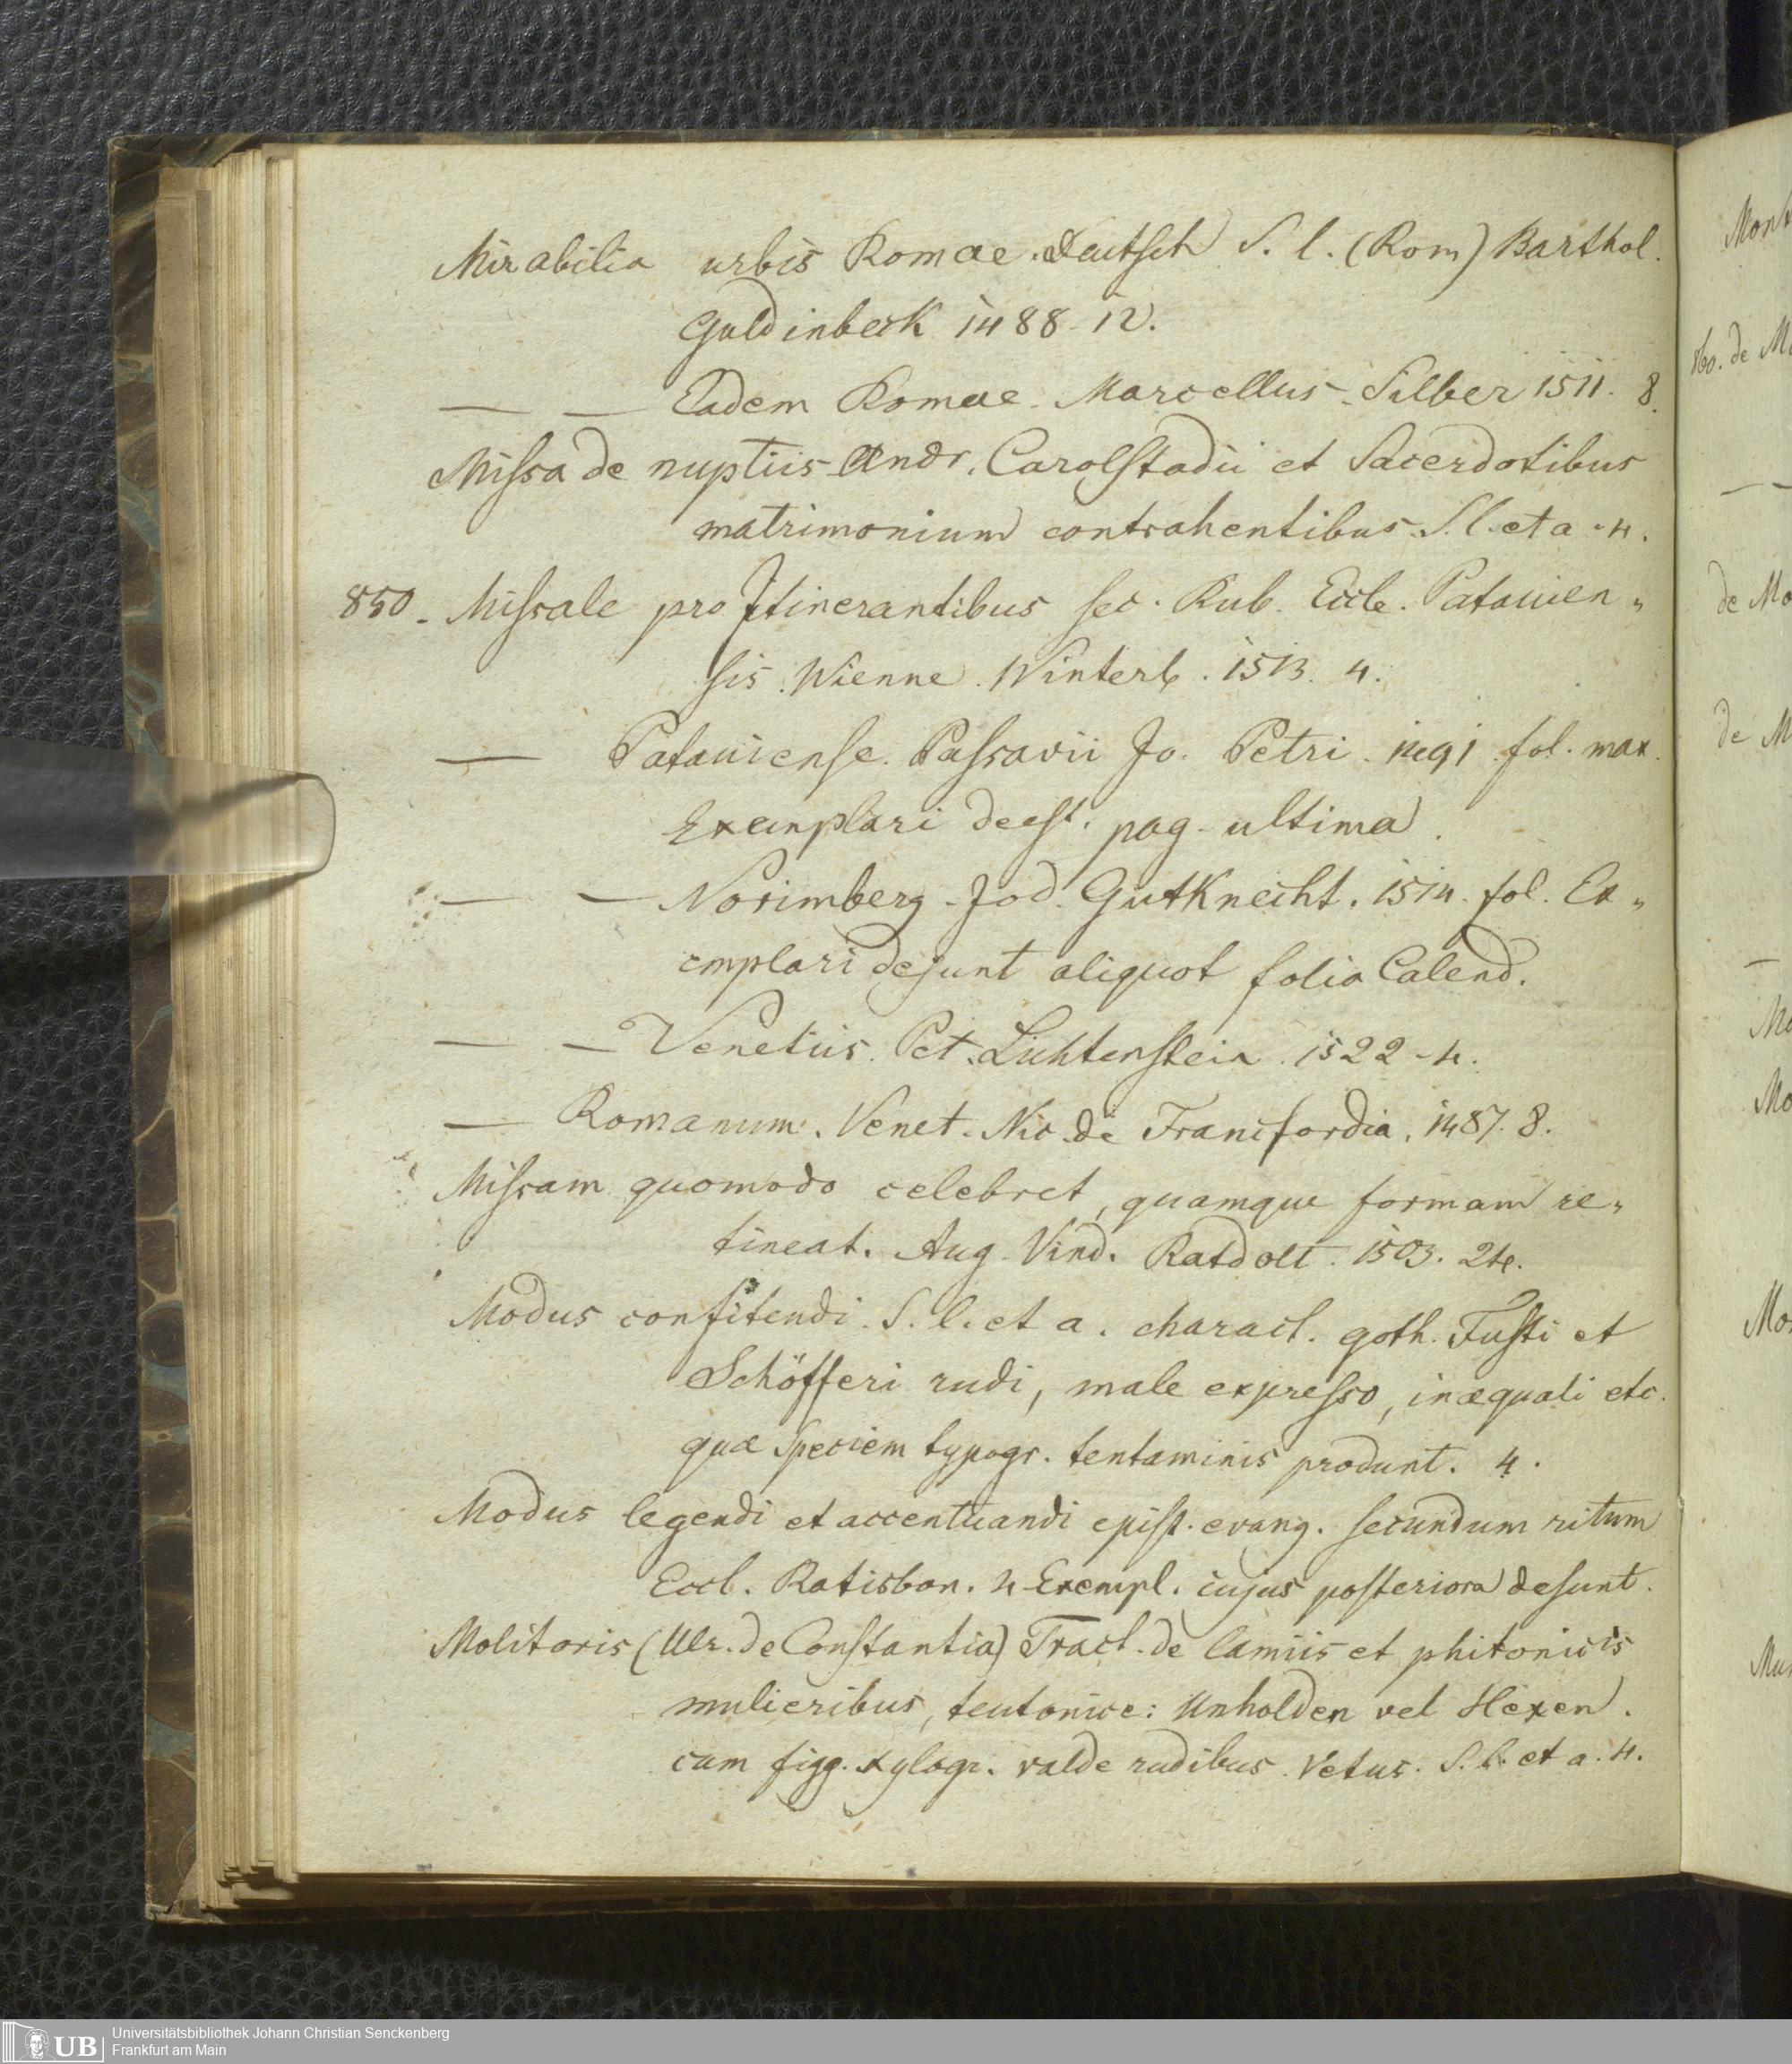 Mirabilia urbis Romae. Deutsch S. l. (Rom) Barthol.
Guldinbeck 1488. 12.
— — Eadem Romae. Marcellus Silber 1511. 8.
Missa de nuptiis Andr. Carolstadii et Sacerdotibus
matrimonium contrahentibus. S. l. et a. 4.
850. Missale pro Itinerantibus sec. Rub. Eccle. Patauien„
sis. Wienne. Winterb. 1513. 4.
— Patauiense. Passavii Jo. Petri. 1491. fol. max.
Exemplari deest. pag. ultima.
— — Norimberg. Jod. Gutknecht. 1514. fol. Ex„
emplari desunt aliquot folia Calend.
— — Venetiis. Pet. Lichtenstein. 1522. 4.
— Romanum. Venet. Nic. de Francfordia. 1487. 8.
Missam quomodo celebret, quamque formam re„
tineat. Aug. Vind. Ratdolt. 1503. 24.
Modus confitendi. S. l. et a. charact. goth. Fusti et
Schöfferi rudi, male expresso, inæquali etc.
quæ speciem typogr. tentaminis produnt. 4.
Modus legendi et accentuandi epist. evang. secundum ritum
Eccl. Ratisbon. 4. Exempl. cujus posteriora desunt.
Molitoris (Ulr. de Constantia) Tract. de lamiis et phitonicis
mulieribus, teutonice: Unholden vel Hexen.
cum figg. xylogr. valde rudibus. Vetus. S. l. et a. 4.
Mont
860. de
de Mo
de M
Mo
Mo
Mo
Universitätsbibliothek Johann Christian Senckenberg
UB Frankfurt am Main